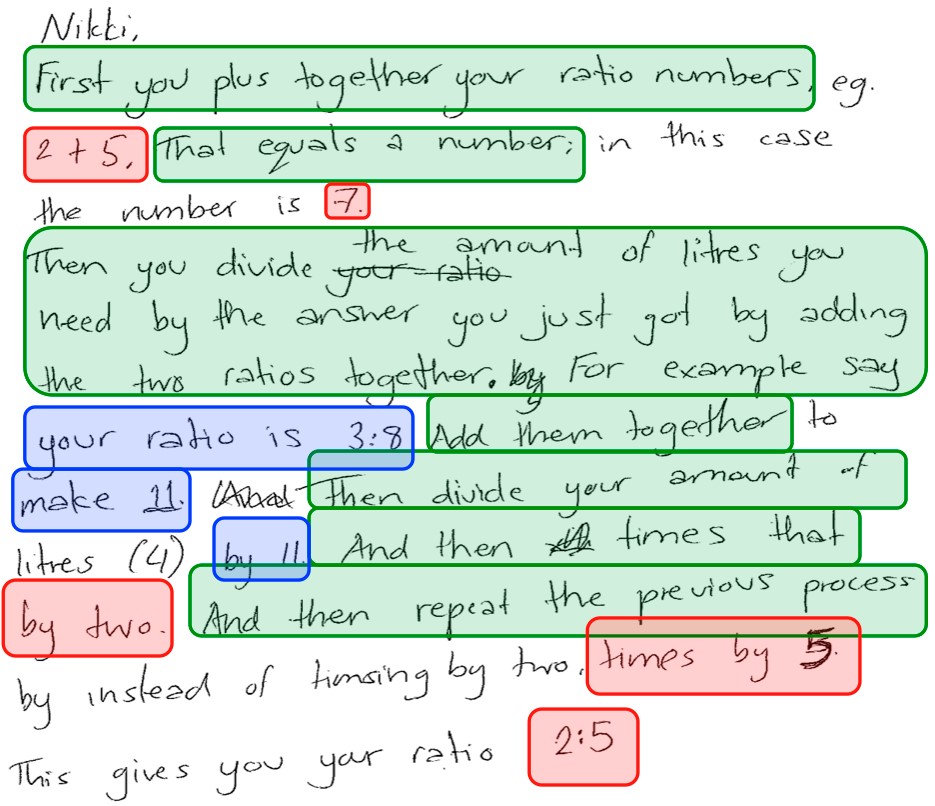 Nikki,
First you plus together your ratio numbers, eg.
2 + 5, That equals a number; in this case
the number is 7.
Then you divide your ratio the amount of litres you
need by the answer you just got by adding
the two ratios together. by For example say
your ratio is 3:8 Add them together to
make 11. Then divide your amount of
litres (4) by 11. And then times that
by two. And then repeat the previous process
by instead of timsing by two, times by 5.
This gives you your ratio 2:5